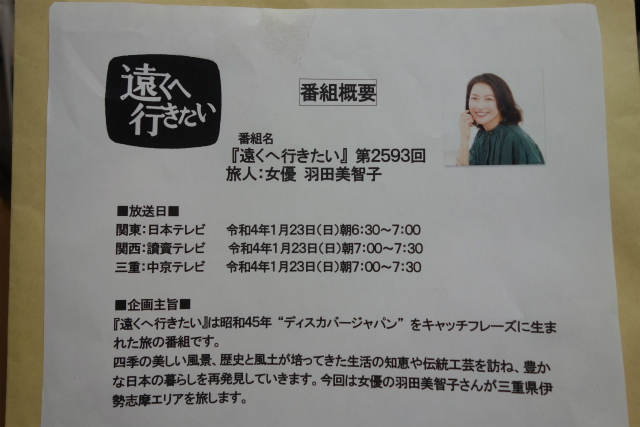 遠くへ
行きたい
番組概要
番組名
『遠くへ行きたい』 第2593回
旅人：女優 羽田美智子
■放送日■
関東：日本テレビ 令和4年1月23日（日）朝6:30～7:00
関西：讀賣テレビ 令和4年1月23日（日）朝7:00～7:30
三重：中京テレビ 令和4年1月23日（日）朝7:00～7:30
■企画主旨■
『遠くへ行きたい』は昭和45年 “ディスカバージャパン” をキャッチフレーズに生ま
れた旅の番組です。
四季の美しい風景、歴史と風土が培ってきた生活の知恵や伝統工芸を訪ね、豊か
な日本の暮らしを再発見していきます。今回は女優の羽田美智子さんが三重県伊
勢志摩エリアを旅します。